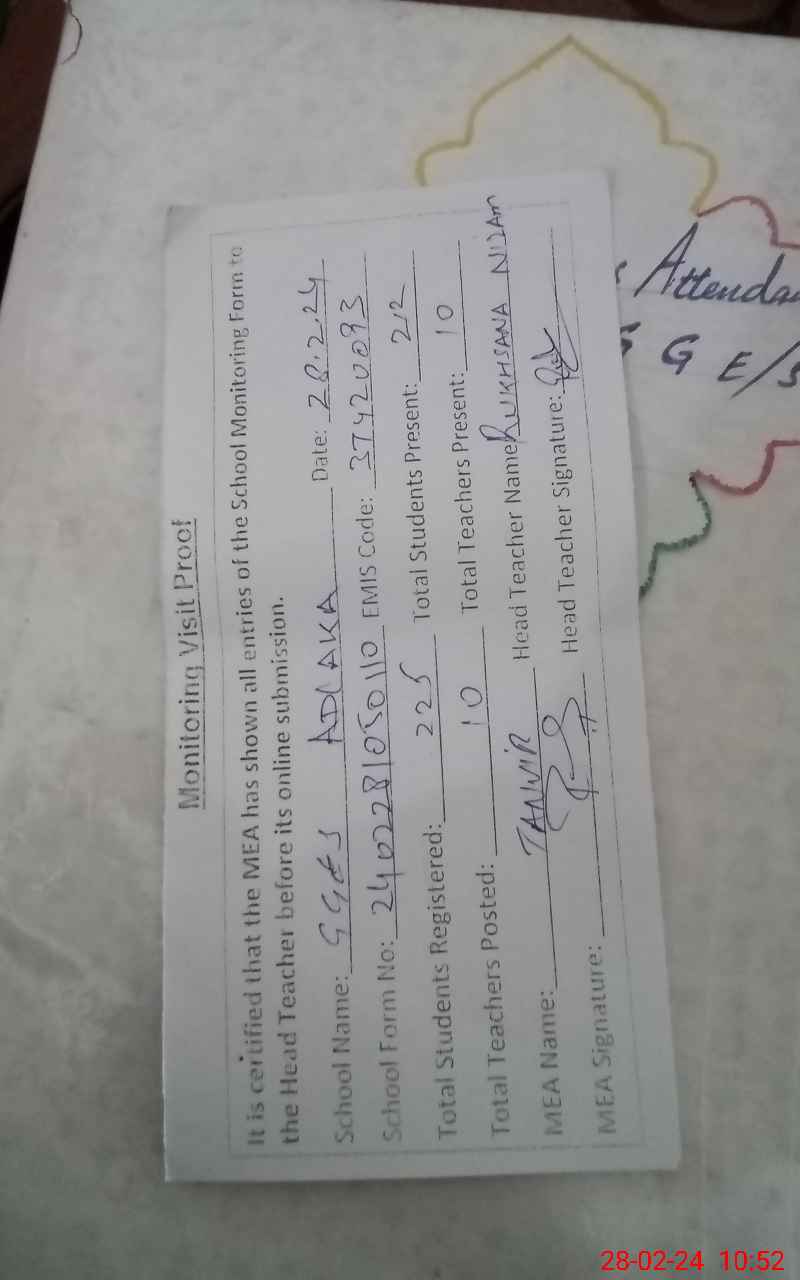 Monitoring Visit Proof
It is certified that the MEA has shown all entries of the School Monitoring Form to
the Head Teacher before its online submission.
School Name: GGES ADLAKA Date: 28.2.24
School Form No: 2402281050110 EMIS Code: 37420093
Total Students Registered: 225 Total Students Present: 212
Total Teachers Posted: 10 Total Teachers Present: 10
MEA Name: TANWIR Head Teacher Name RUKHSANA NIZAM
MEA Signature: Head Teacher Signature:
Attendan
G E/S
28-02-24 10:52